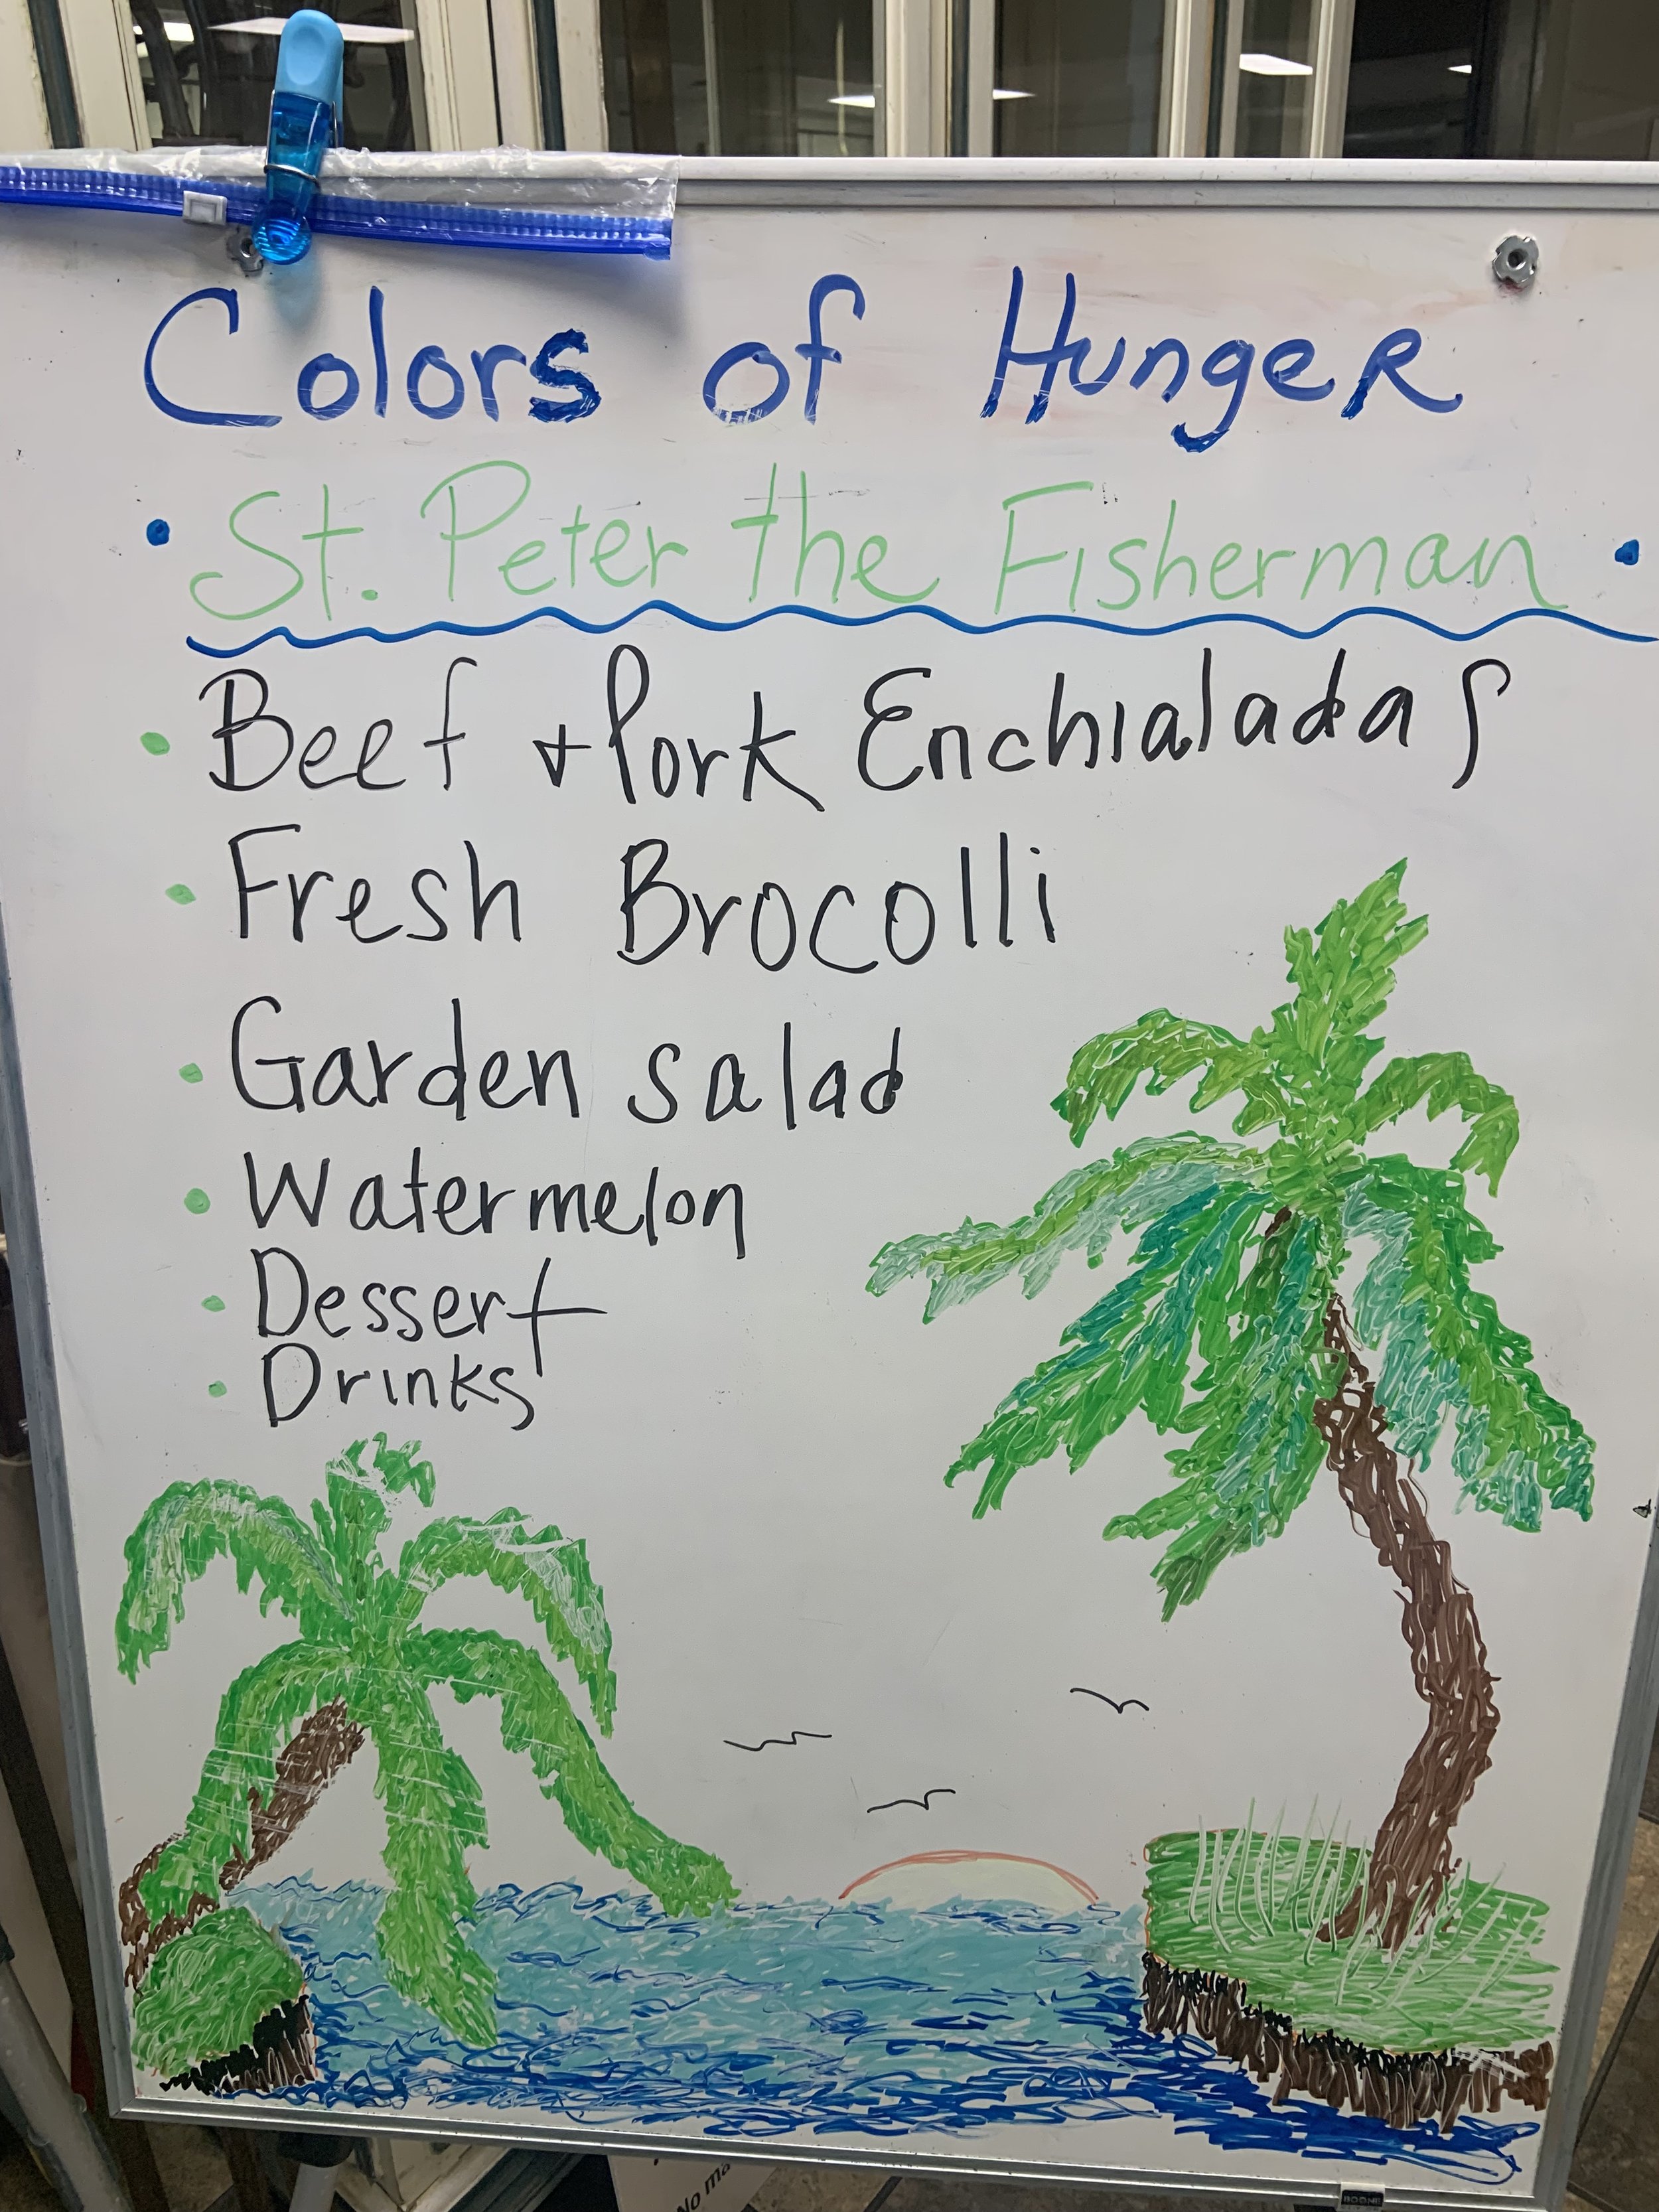 Colors of Hunger
• St. Peter the Fisherman •
• Beef + Pork Enchialadas
• Fresh Brocolli
• Garden salad
• Watermelon
• Dessert
• Drinks
No ma
BOONE